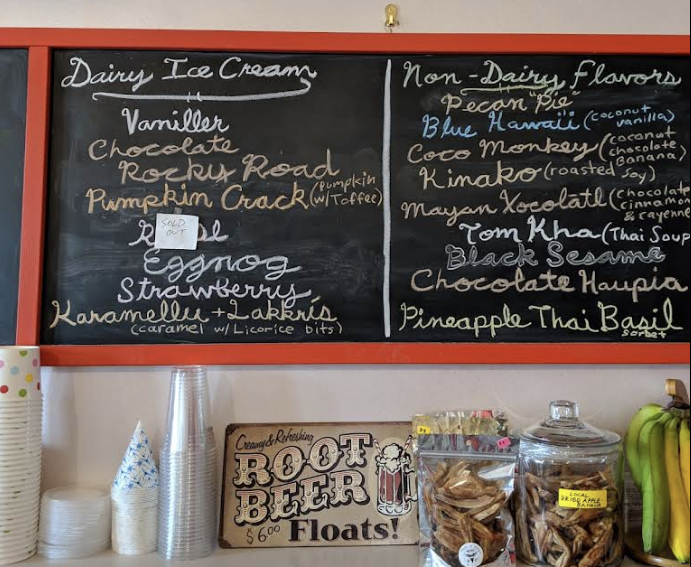 Dairy Ice Cream
Vaniller
Chocolate
Rocky Road
Pumpkin Crack (Pumpkin w/Toffee)
SOLD OUT
Eggnog
Strawberry
Karamellu + Lakkrís
(caramel w/ Licorice bits)
Non-Dairy Flavors
Pecan "Pie"
Blue Hawaii (coconut vanilla)
Coco Monkey (coconut chocolate Banana)
Kinako (roasted Soy)
Mayan Xocolatl (chocolate cinnamon & cayenne
Tom Kha (Thai Soup
Black Sesame
Chocolate Haupia
Pineapple Thai Basil
sorbet
Creamy & Refreshing
ROOT
BEER
$6.00 Floats!
LOCAL
DRIED APPLE-
BANANA